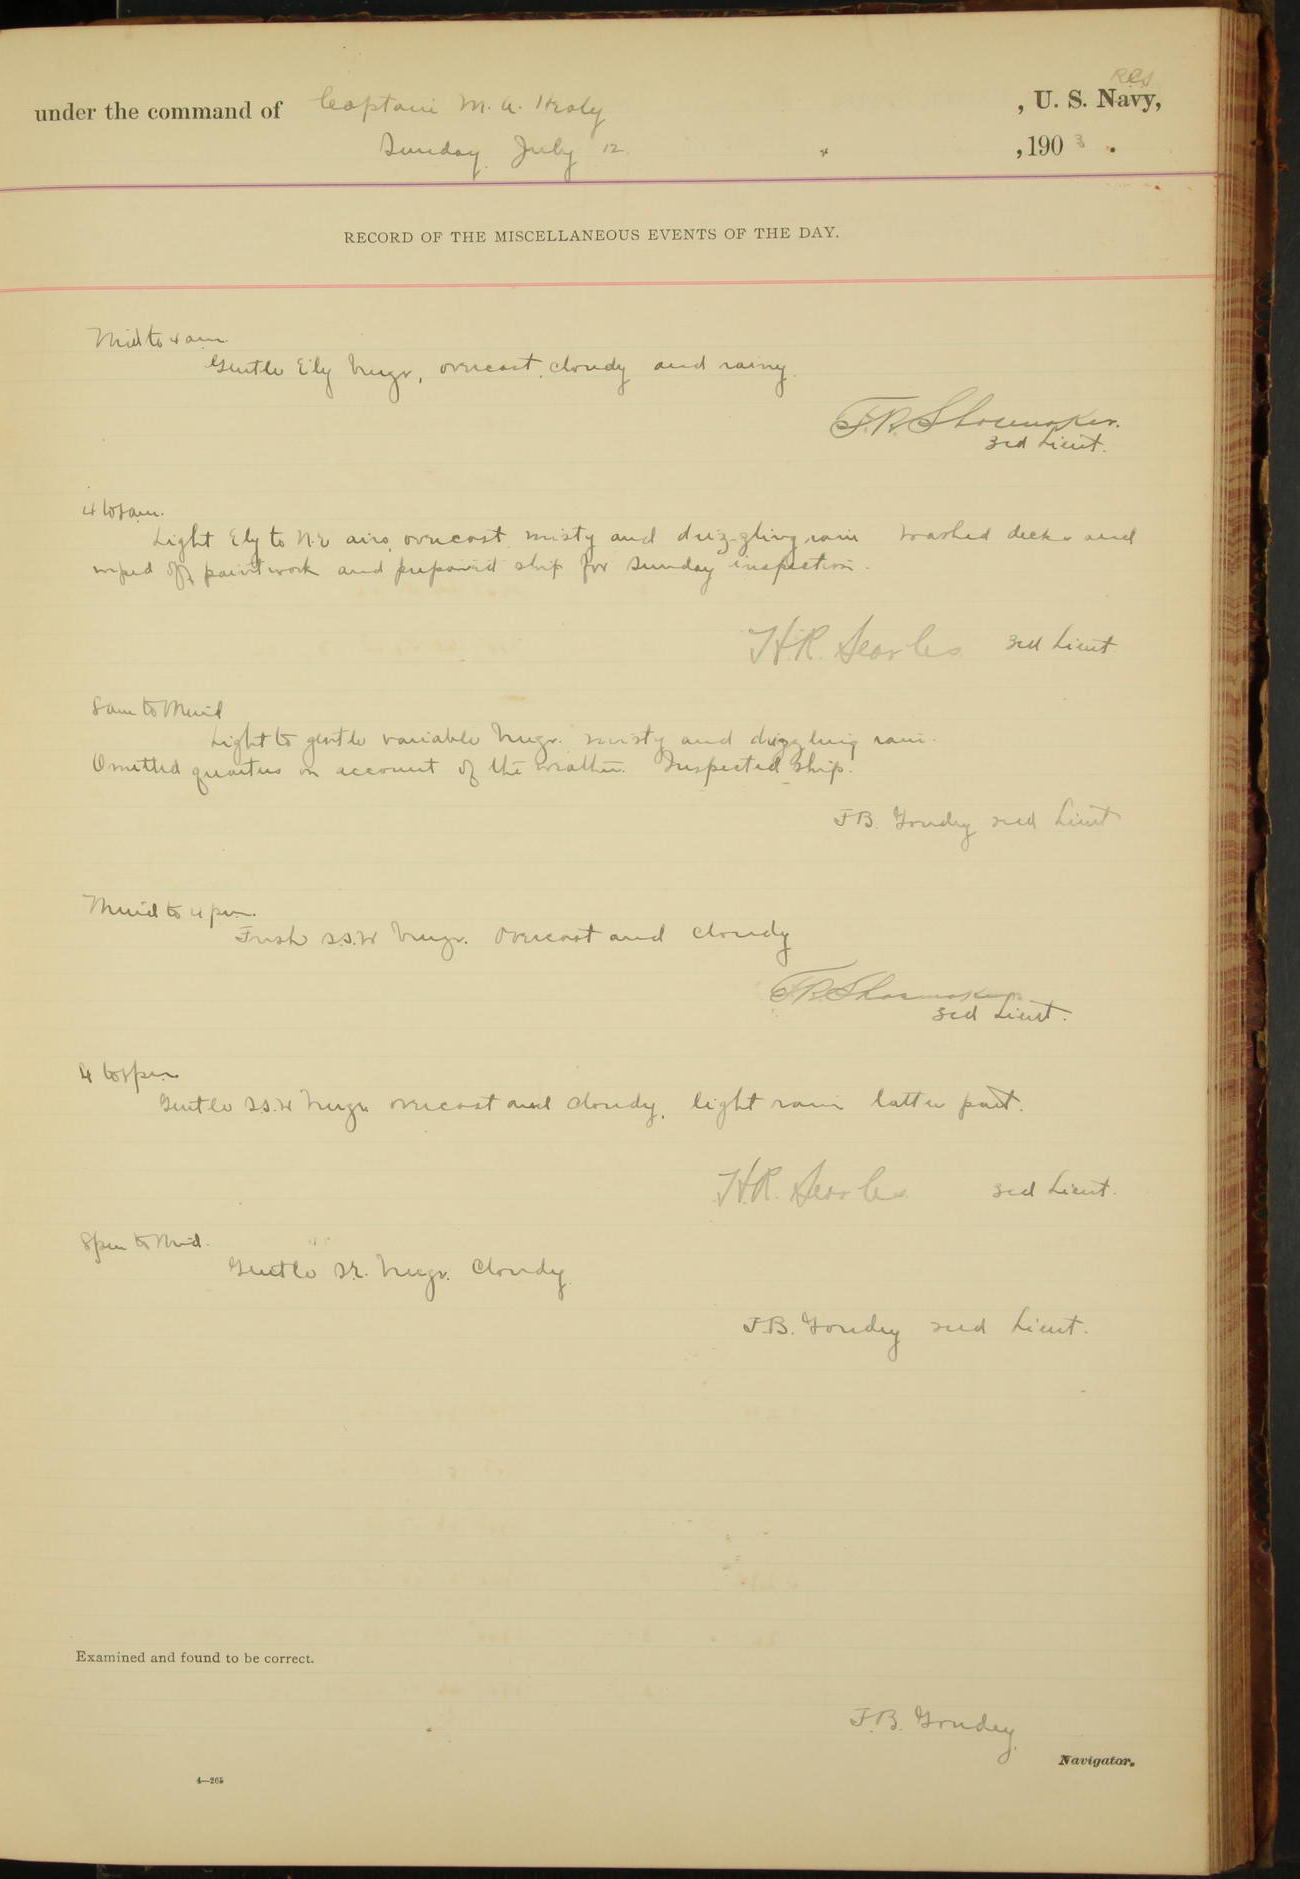 RCS
under the command of Captain M. A. Healy , U. S. Navy,
Sunday July 12 , 190 3 .
RECORD OF THE MISCELLANEOUS EVENTS OF THE DAY.
Mid to 4 am.
Gentle E'ly breeze, overcast, cloudy and rainy.
F.R. Shoemaker.
3rd Lieut.
4 to 8 am.
Light Ely to N.E airs, overcast, misty and drizzling rain Washed decks and
wiped off paintwork and prepared ship for Sunday inspection.
H.R. Searles 3rd Lieut
8 am to Merid
Light to gentle variable breeze. misty and drizzling rain.
Omitted quarters on account of the weather. Inspected ship.
J.B. Goudey 2nd Lieut
Merid to 4 pm.
Fresh S.S.W breeze. Overcast and cloudy
F.R. Shoemaker
3rd Lieut.
4 to 8 pm
Gentle S.S.W breeze overcast and cloudy, light rain latter part.
H.R. Searles 3rd Lieut.
8 pm to Mid.
Gentle S.E. breeze. Cloudy.
J.B. Goudey 2nd Lieut.
Examined and found to be correct.
J.B. Goudey
Navigator.
4—265